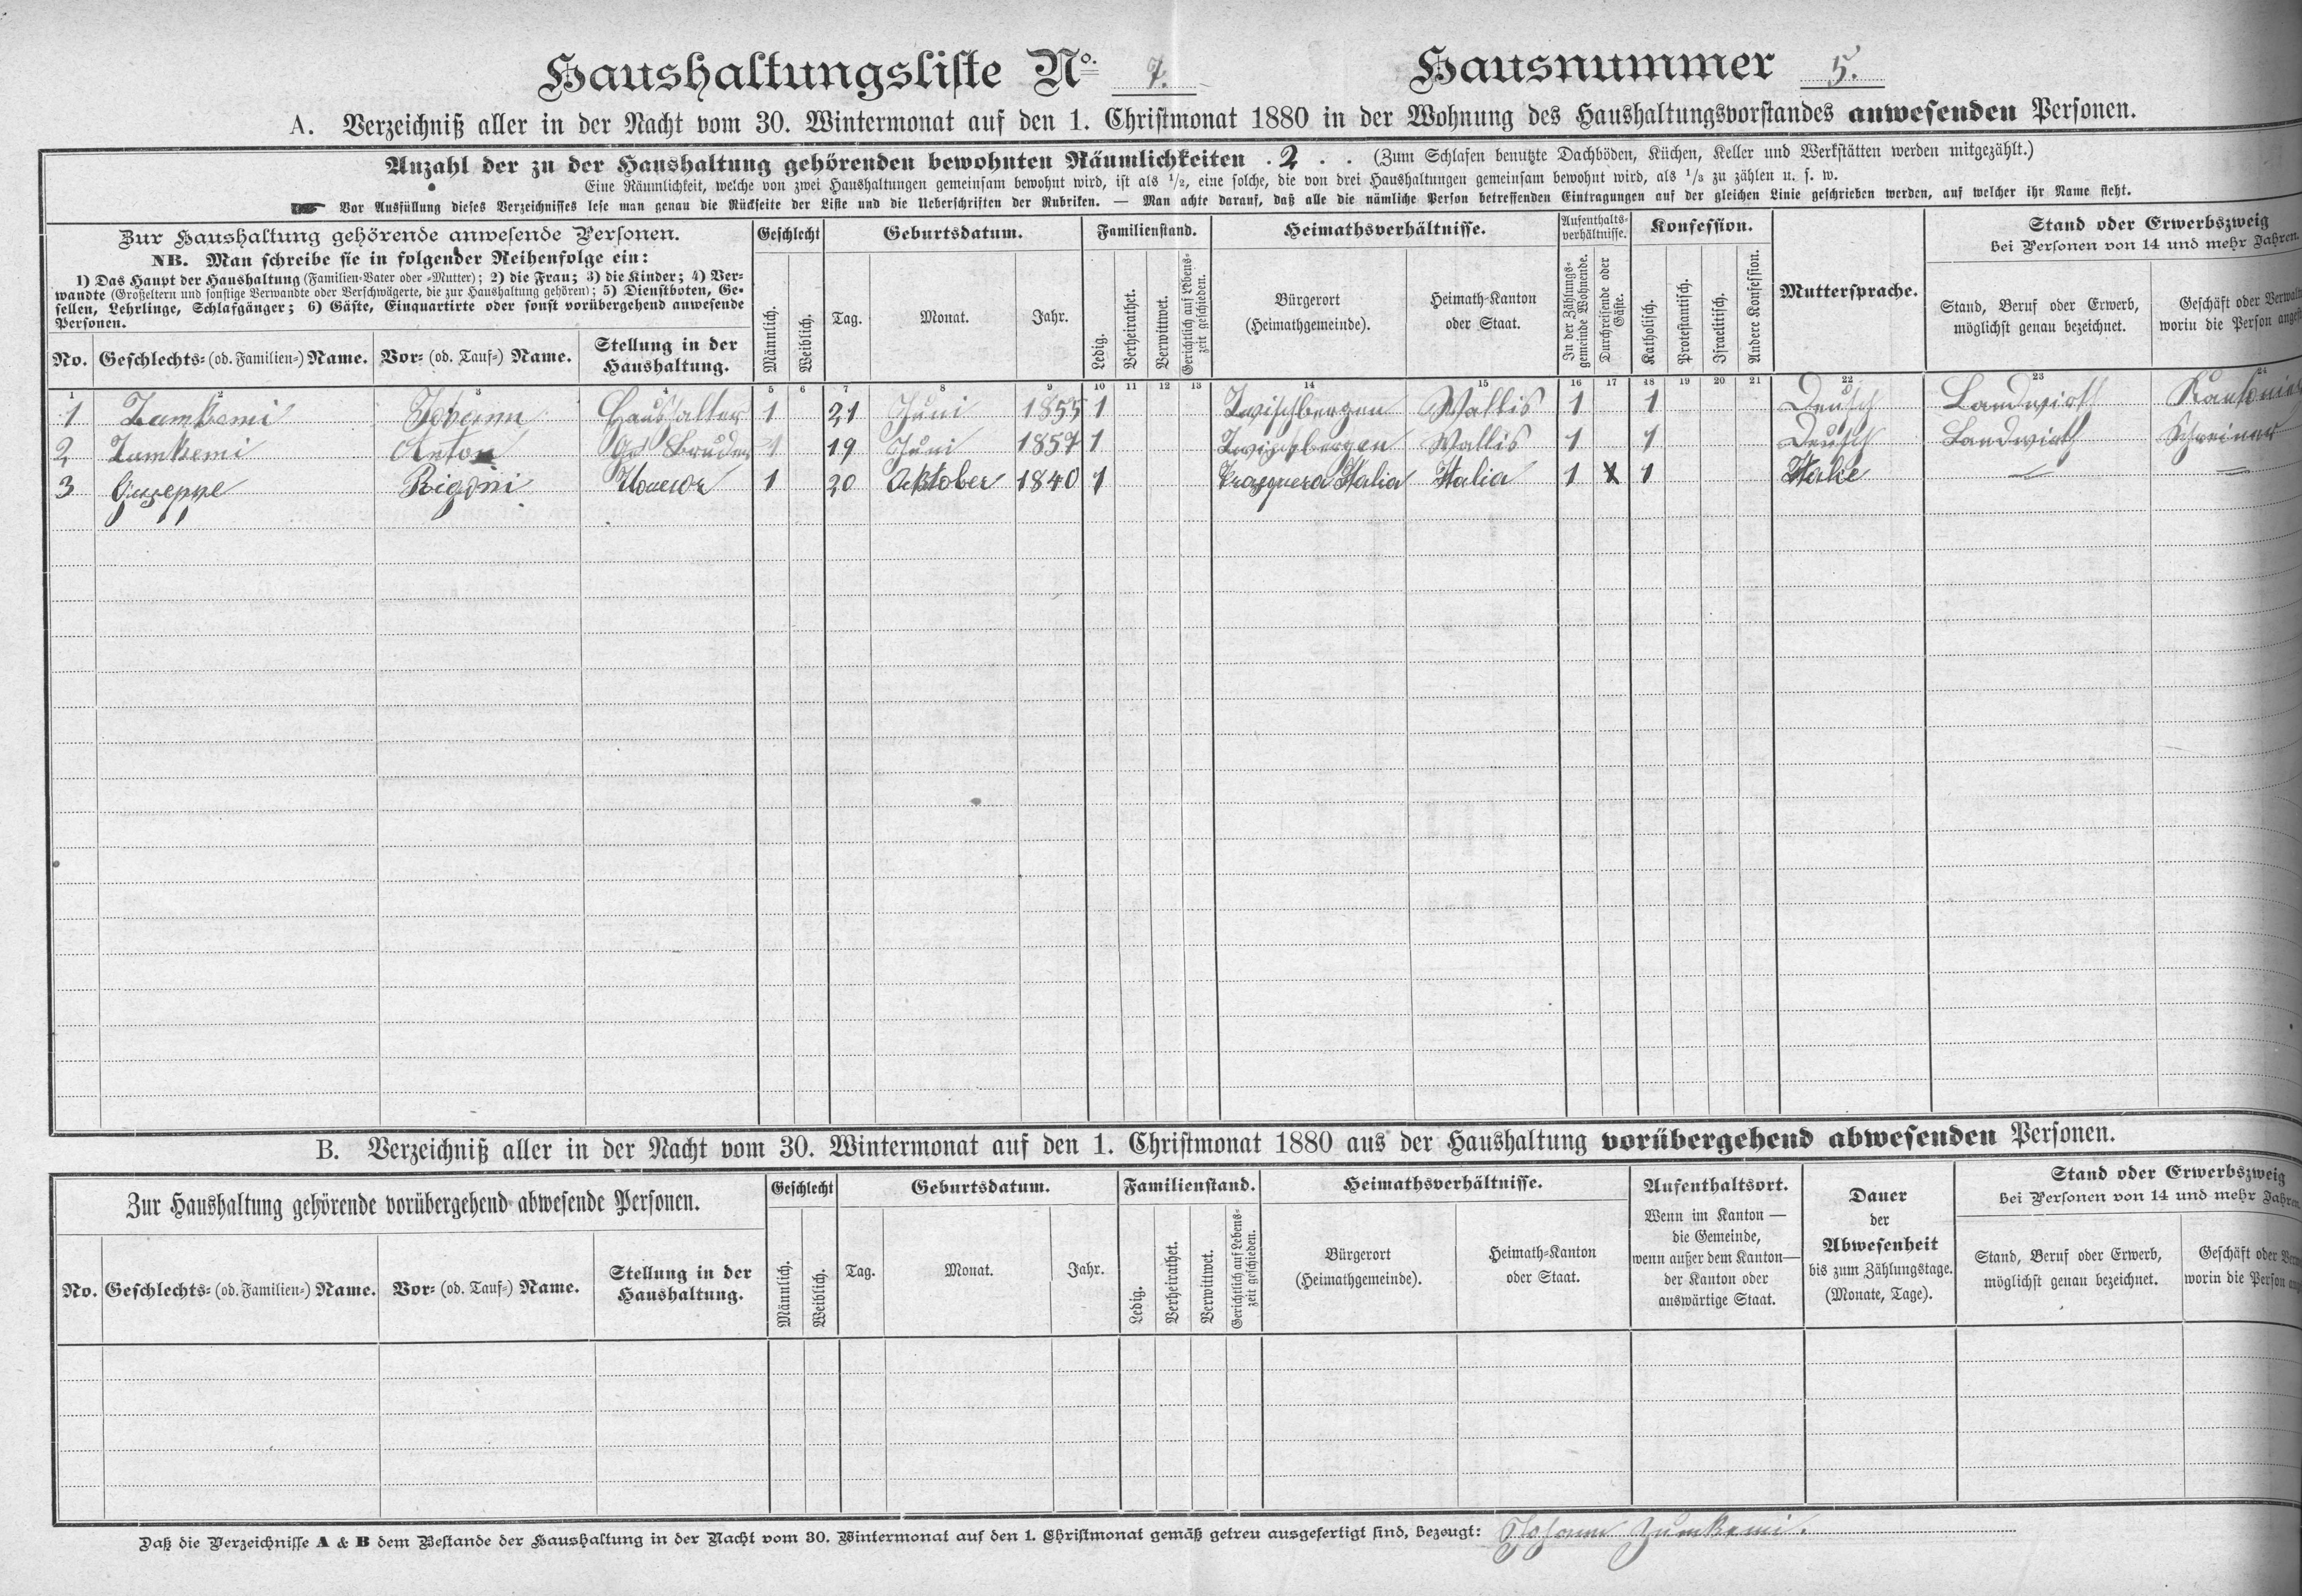 Haushaltungsliste No. 7. Hausnummer 5.
A. Verzeichniß aller in der Nacht vom 30. Wintermonat auf den 1. Christmonat 1880 in der Wohnung des Haushaltungsvorstandes anwesenden Personen.
Anzahl der zu der Haushaltung gehörenden bewohnten Räumlichkeiten . 2 . . (Zum Schlafen benutzte Dachböden, Küchen, Keller und Werkstätten werden mitgezählt.)
Eine Räumlichkeit, welche von zwei Haushaltungen gemeinsam bewohnt wird, ist als 1/2, eine solche, die von drei Haushaltungen gemeinsam bewohnt wird, als 1/3 zu zählen u. s. w.
Vor Ausfüllung dieses Verzeichnisses lese man genau die Rückseite der Liste und die Ueberschriften der Rubriken. — Man achte darauf, daß alle die nämliche Person betreffenden Eintragungen auf der gleichen Linie geschrieben werden, auf welcher ihr Name steht.
Zur Haushaltung gehörende anwesende Personen.
NB. Man schreibe sie in folgender Reihenfolge ein:
1) Das Haupt der Haushaltung (Familien-Vater oder -Mutter); 2) die Frau; 3) die Kinder; 4) Ver-
wandte (Großeltern und sonstige Verwandte oder Verschwägerte, die zur Haushaltung gehören); 5) Dienstboten, Ge-
sellen, Lehrlinge, Schlafgänger; 6) Gäste, Einquartirte oder sonst vorübergehend anwesende
Personen.
No. Geschlechts- (od. Familien-) Name. Vor- (od. Tauf-) Name. Stellung in der
Haushaltung.
Geschlecht
Männlich. Weiblich.
Geburtsdatum.
Tag. Monat. Jahr.
Familienstand.
Ledig. Verheirathet. Verwittwet. Gerichtlich auf Lebens-
zeit geschieden.
Heimathsverhältnisse.
Bürgerort
(Heimathgemeinde).
Heimath-Kanton
oder Staat.
Aufenthalts-
verhältnisse.
In der Zählungs-
gemeinde Wohnende.
Durchreisende oder
Gäste.
Konfession.
Katholisch. Protestantisch. Israelitisch. Andere Konfession.
Muttersprache.
Stand oder Erwerbszweig
bei Personen von 14 und mehr Jahren.
Stand, Beruf oder Erwerb,
möglichst genau bezeichnet.
Geschäft oder
worin die Person
1 2 3 4 5 6 7 8 9 10 11 12 13 14 15 16 17 18 19 20 21 22 23 24
1 Zumkemi Johann Haushalter 1 21 Juni 1855 1 Zwischbergen Wallis 1 1 Deutsch Landwirth
2 Zumkemi Anton Bruder 1 19 Juni 1857 1 Zwischbergen Wallis 1 1 Deutsch Landwirth Schreiner
3 Giuseppe Rigoni 1 20 Oktober 1840 1 Trasquera Italia Italia 1 1 Italie — —
B. Verzeichniß aller in der Nacht vom 30. Wintermonat auf den 1. Christmonat 1880 aus der Haushaltung vorübergehend abwesenden Personen.
Zur Haushaltung gehörende vorübergehend abwesende Personen.
No. Geschlechts- (od. Familien-) Name. Vor- (od. Tauf-) Name. Stellung in der
Haushaltung.
Geschlecht
Männlich. Weiblich.
Geburtsdatum.
Tag. Monat. Jahr.
Familienstand.
Ledig. Verheirathet. Verwittwet. Gerichtlich auf Lebens-
zeit geschieden.
Heimathsverhältnisse.
Bürgerort
(Heimathgemeinde).
Heimath-Kanton
oder Staat.
Aufenthaltsort.
Wenn im Kanton —
die Gemeinde,
wenn außer dem Kanton—
der Kanton oder
auswärtige Staat.
Dauer
der
Abwesenheit
bis zum Zählungstage.
(Monate, Tage).
Stand oder Erwerbszweig
bei Personen von 14 und mehr Jahren.
Stand, Beruf oder Erwerb,
möglichst genau bezeichnet.
Geschäft oder
worin die Person
Daß die Verzeichnisse A & B dem Bestande der Haushaltung in der Nacht vom 30. Wintermonat auf den 1. Christmonat gemäß getreu ausgefertigt sind, bezeugt: Johann Zumkemi.